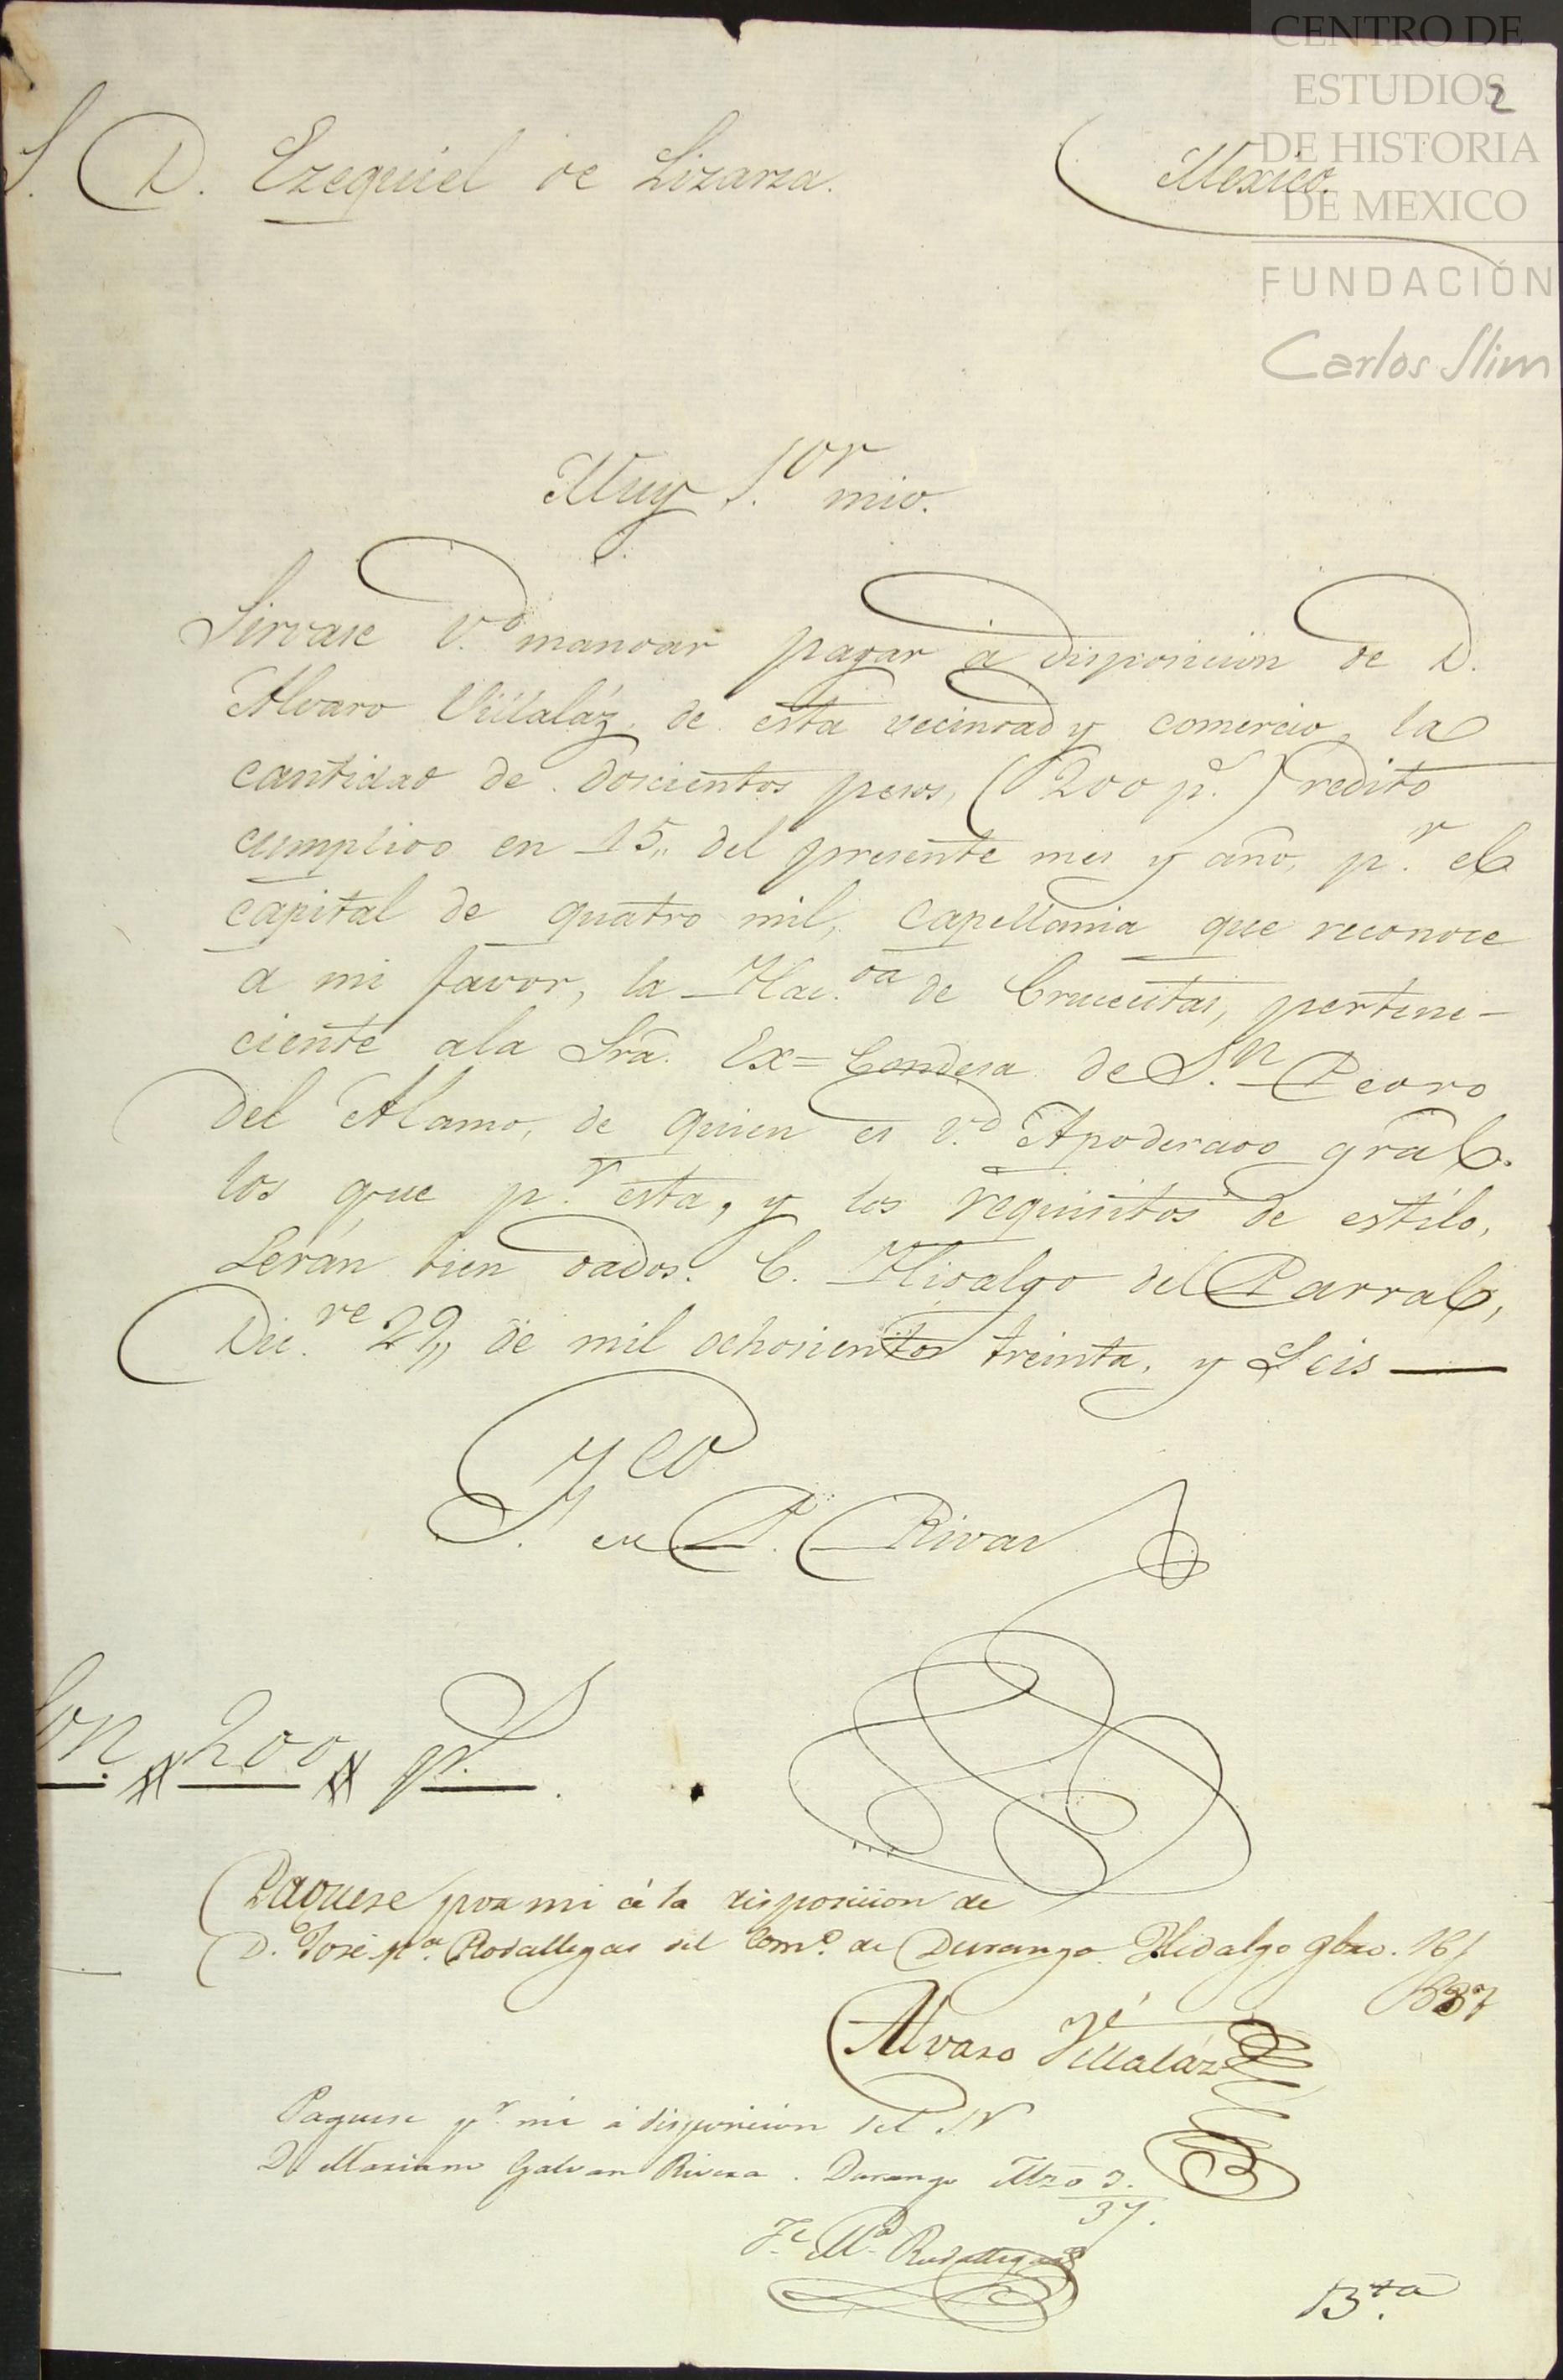 CENTRO DE
ESTUDIOS
DE HISTORIA
DE MEXICO
FUNDACIÓN
Carlos Slim
2
S. D. Ezequiel de Lizarza. Mexico.
Muy S.or mio.
Sirvase V.d mandar pagar á disposicion de D.
Alvaro Villaláz, de esta vecindad y comercio, la
cantidad de doscientos pesos, (200 p.s) redito
cumplido en 15,, del presente mes y año, p.r el
capital de quatro mil, capellania que reconoce
a mi favor, la Hac.da de Crucecitas, pertene-
ciente ala Sra. Ex=Condesa de S.n Pedro
del Alamo, de quien es V.d Apoderado gral.
los que p.r esta, y los requisitos de estilo,
Serán bien dados. C. Hidalgo del Parral,
Dic.re 29,, de mil ochosientos treinta, y Seis —
P. Rivas
Son. # 200 # p.s
Paguese por mi á la disposicion de
D.n José M.a Rodallegas del Com.o de Durango. Hidalgo 16/
837
Alvaro Villaláz
Paguese p.r mi á disposicion del S.r
D. Mariano Galvan Rivera. Durango Mzo 3.
37.
J.e M.a Rodallegas
B.ta